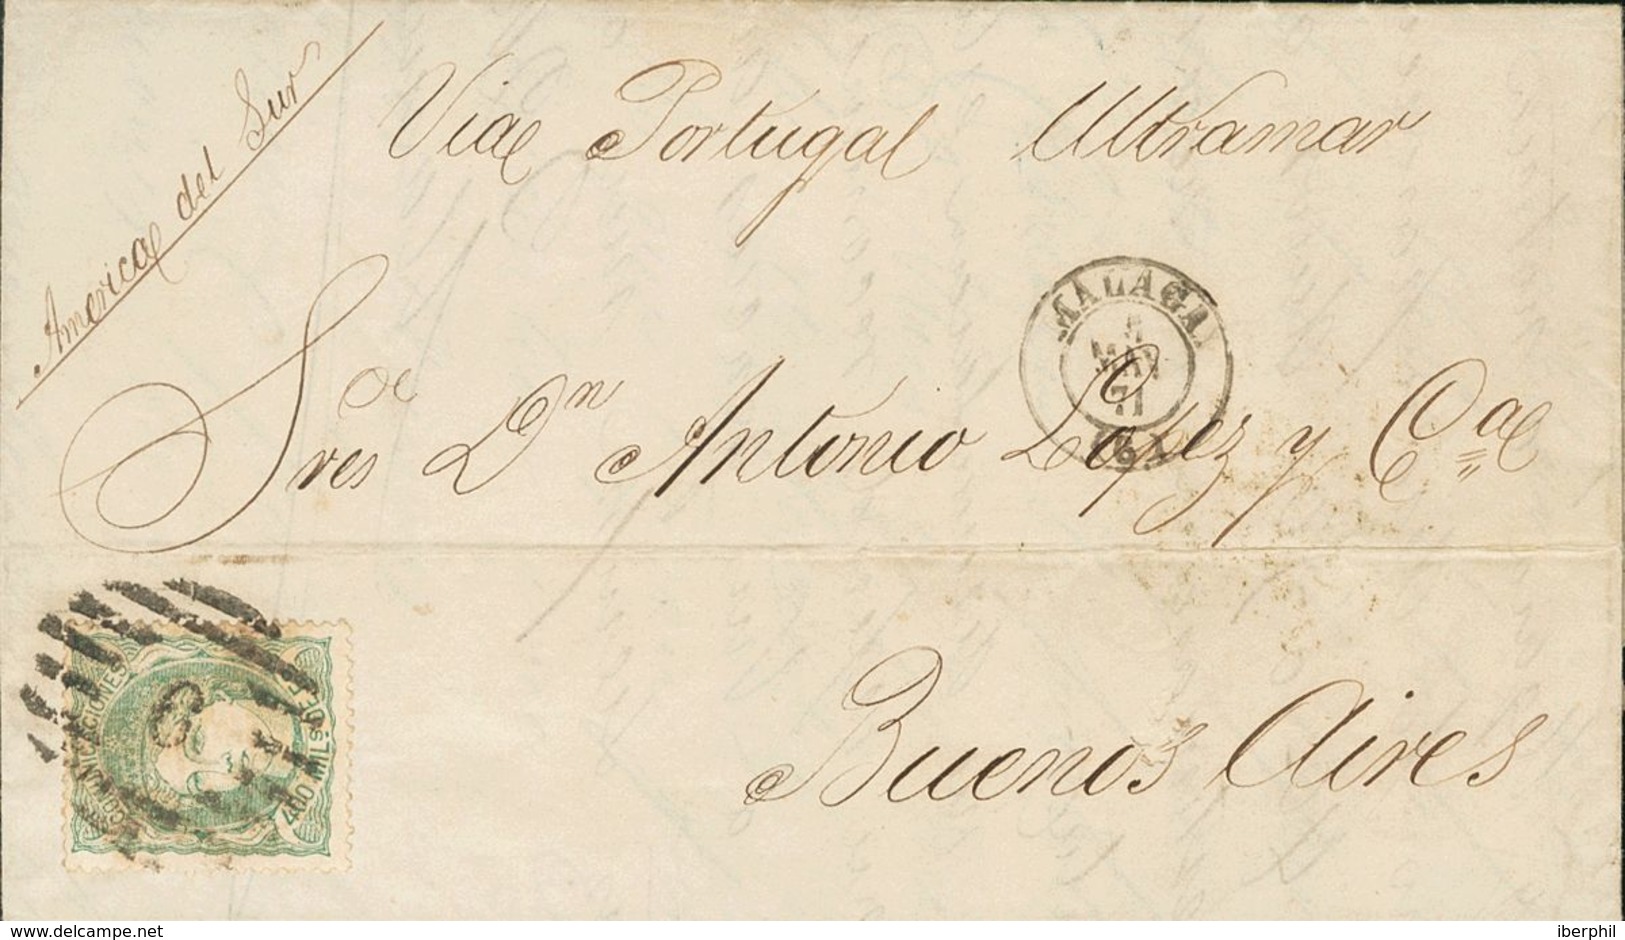 America del Sur
Via Portugal Ultramar
MALAGA
5
MAY
71
Sres Dn Antonio Lopez y Ca
Buenos Aires
COMUNICACIONES
400 MILS. DE E.
delcampe.net
iberphil